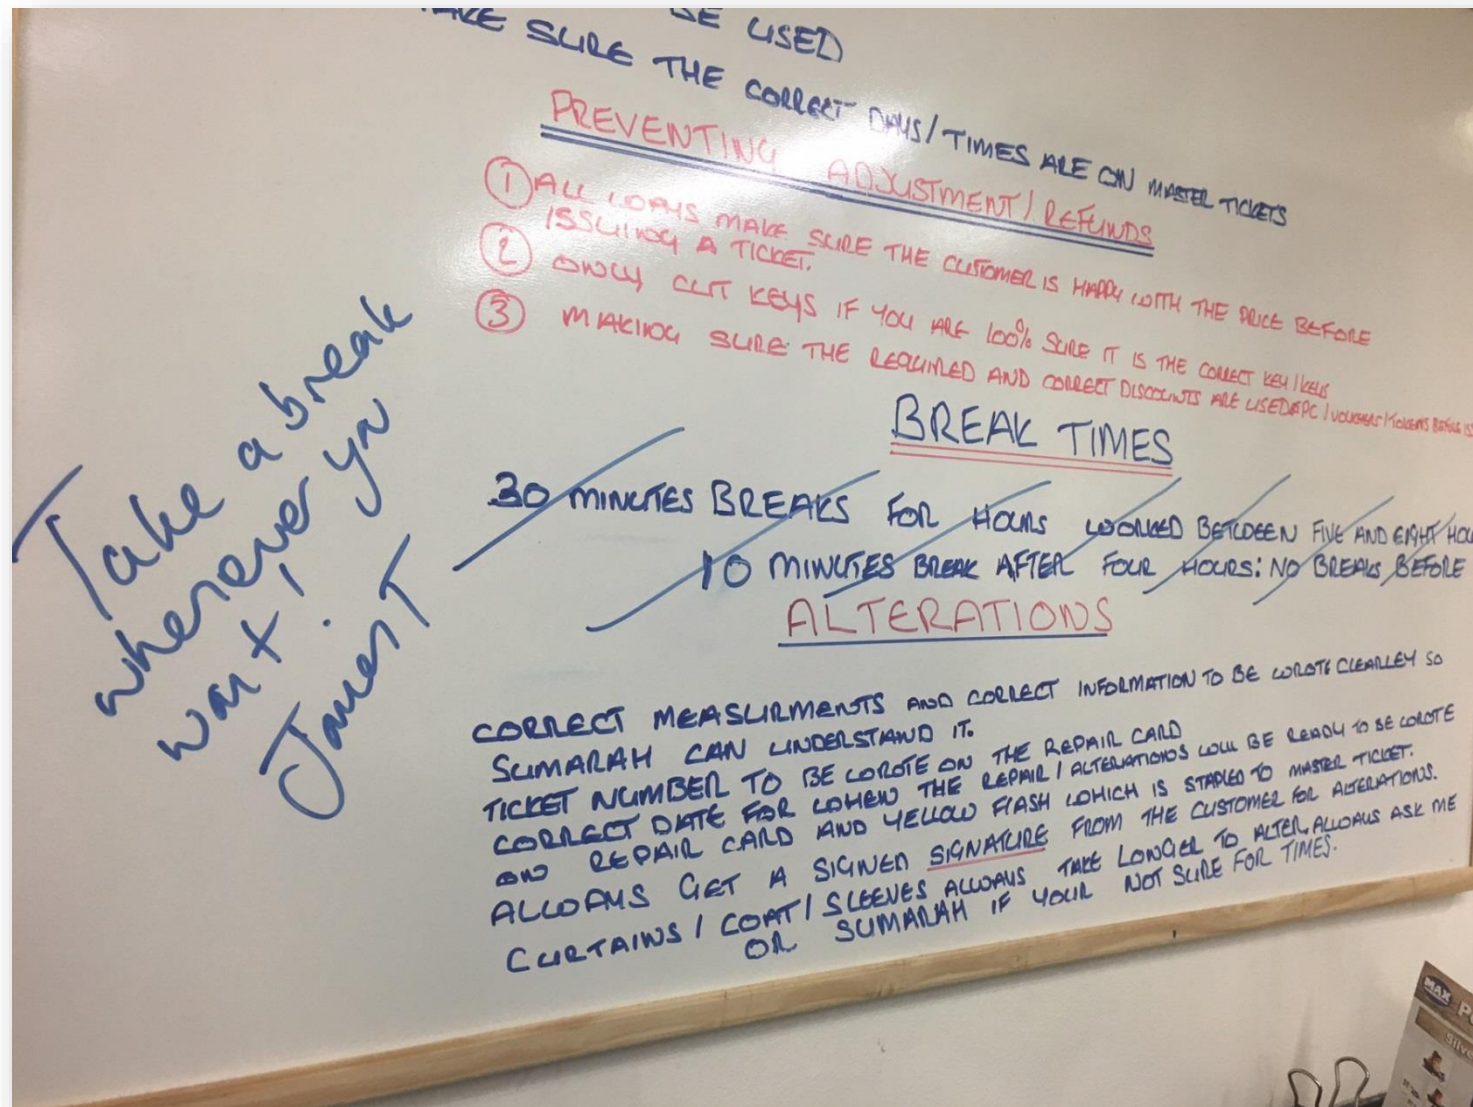 BE USED
MAKE SURE THE CORRECT DAYS/TIMES ARE ON MASTER TICKETS
PREVENTING ADJUSTMENT/REFUNDS
① ALLWAYS MAKE SURE THE CUSTOMER IS HAPPY WITH THE PRICE BEFORE
ISSUING A TICKET.
② ONLY CUT KEYS IF YOU ARE 100% SURE IT IS THE CORRECT KEY/KEYS
③ MAKING SURE THE REQUIRED AND CORRECT DISCOUNTS ARE USED /VOUCHERS/TOKENS BEFORE
BREAK TIMES
30 MINUTES BREAKS FOR HOURS WORKED BETWEEN FIVE AND EIGHT HOU
10 MINUTES BREAK AFTER FOUR HOURS: NO BREAKS BEFORE
Take a break
whenever you
want!
James T
ALTERATIONS
CORRECT MEASURMENTS AND CORRECT INFORMATION TO BE WROTE CLEARLEY SO
SUMARAH CAN UNDERSTAND IT.
TICKET NUMBER TO BE WROTE ON THE REPAIR CARD
CORRECT DATE FOR WHEN THE REPAIR/ALTERATIONS WILL BE READY TO BE WROTE
ON REPAIR CARD AND YELLOW FLASH WHICH IS STAPLED TO MASTER TICKET.
ALLWAYS GET A SIGNED SIGNATURE FROM THE CUSTOMER FOR ALTERATIONS.
CURTAINS/COAT/SLEEVES ALLWAYS TAKE LONGER TO ALTER, ALLWAYS ASK ME
OR SUMARAH IF YOUR NOT SURE FOR TIMES.
MAX